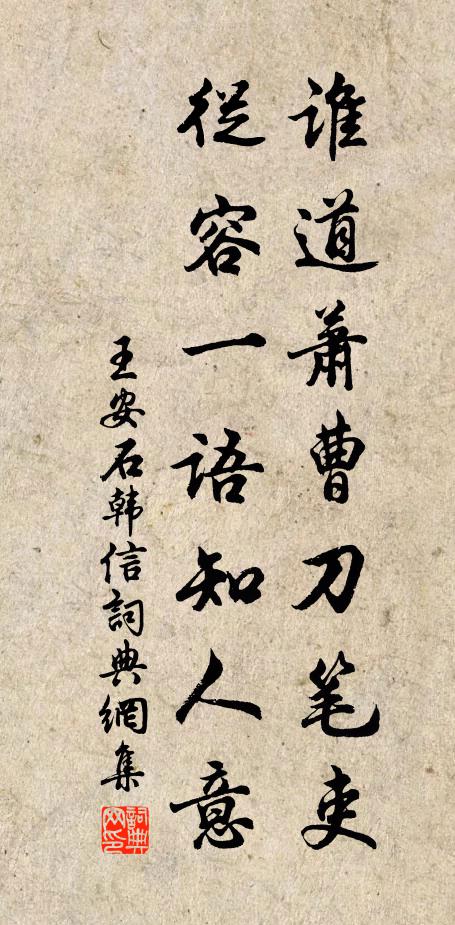 誰道蕭曹刀笔吏
從容一语知人意
王安石韩信詞典網集
詞典网印